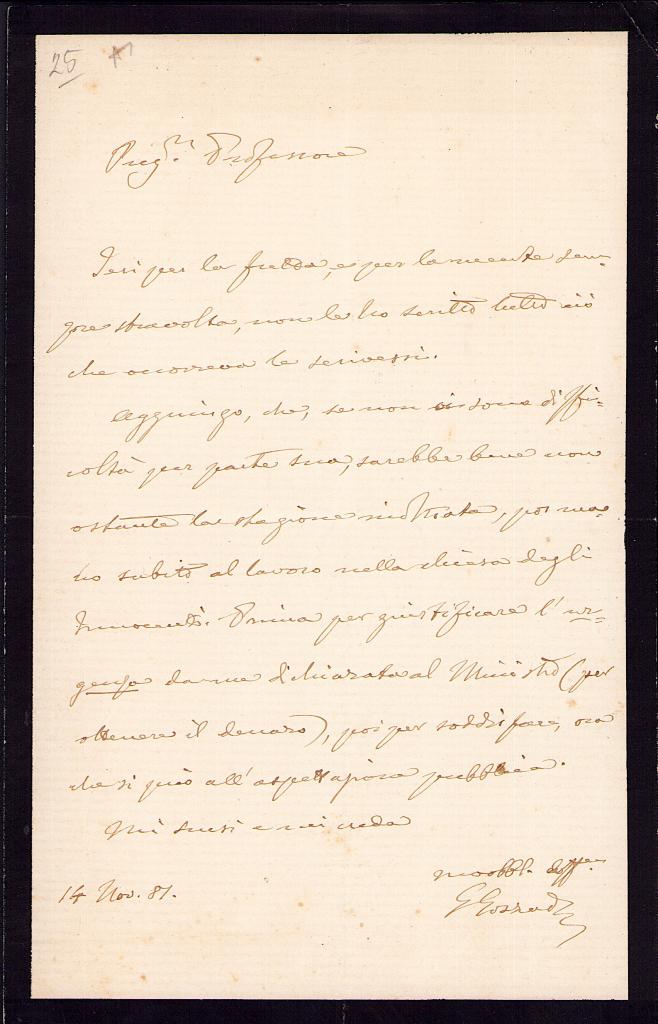 25
Preg.mo Professore
Ieri per la fretta, e per la mente sem-
pre stravolta, non le ho scritto tutto ciò
che occorreva le scrivessi.
Aggiungo, che, se non vi sono diffi-
coltà per parte sua, sarebbe bene non
ostante la stagione inoltrata, por ma-
no subito al lavoro nella chiesa degli
Innocenti. Prima per giustificare l'ur-
genza da me dichiarata al Ministro (per
ottenere il denaro), poi per soddisfare, ora
che si può all'aspettazione pubblica.
Mi scusi e mi creda
14 Nov. 81.
suo obbl. aff.mo
G Gozzadini